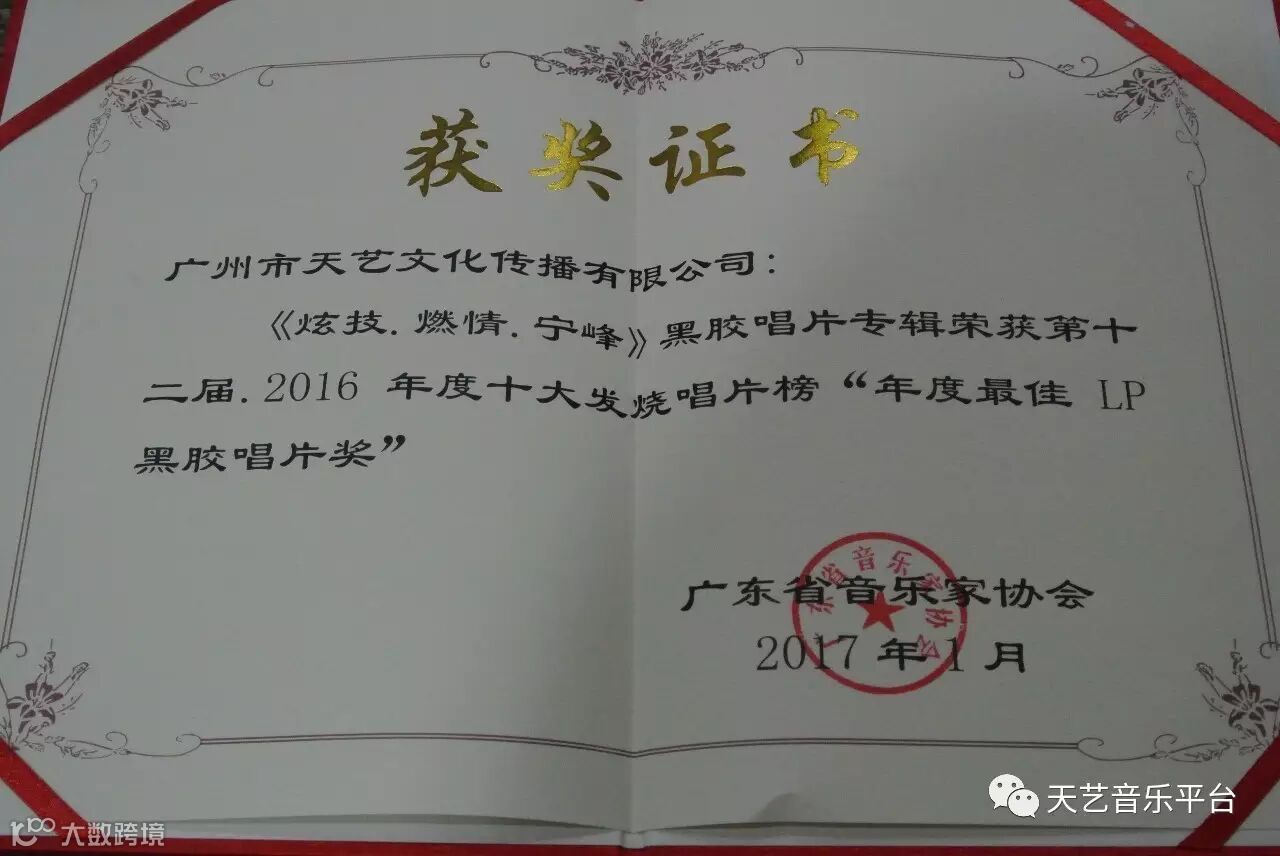 获奖证书
广州市天艺文化传播有限公司：
《炫技.燃情.宁峰》黑胶唱片专辑荣获第十
二届.2016 年度十大发烧唱片榜“年度最佳 LP
黑胶唱片奖”
广东省音乐家协会
2017 年 1 月
广东省音乐家协会
天艺音乐平台
大数跨境